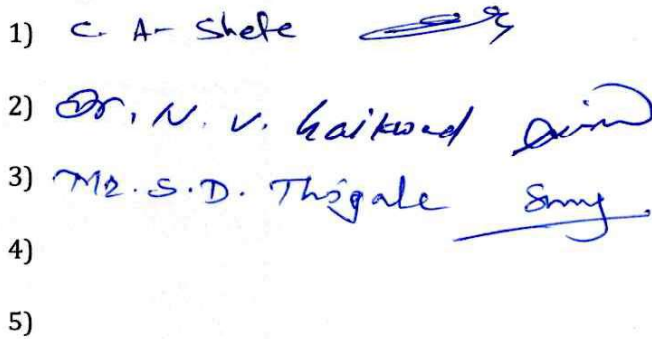 1) C. A- Shete
2) Dr. N. V. Gaikwad
3) Mr. S. D. Thigale
4)
5)